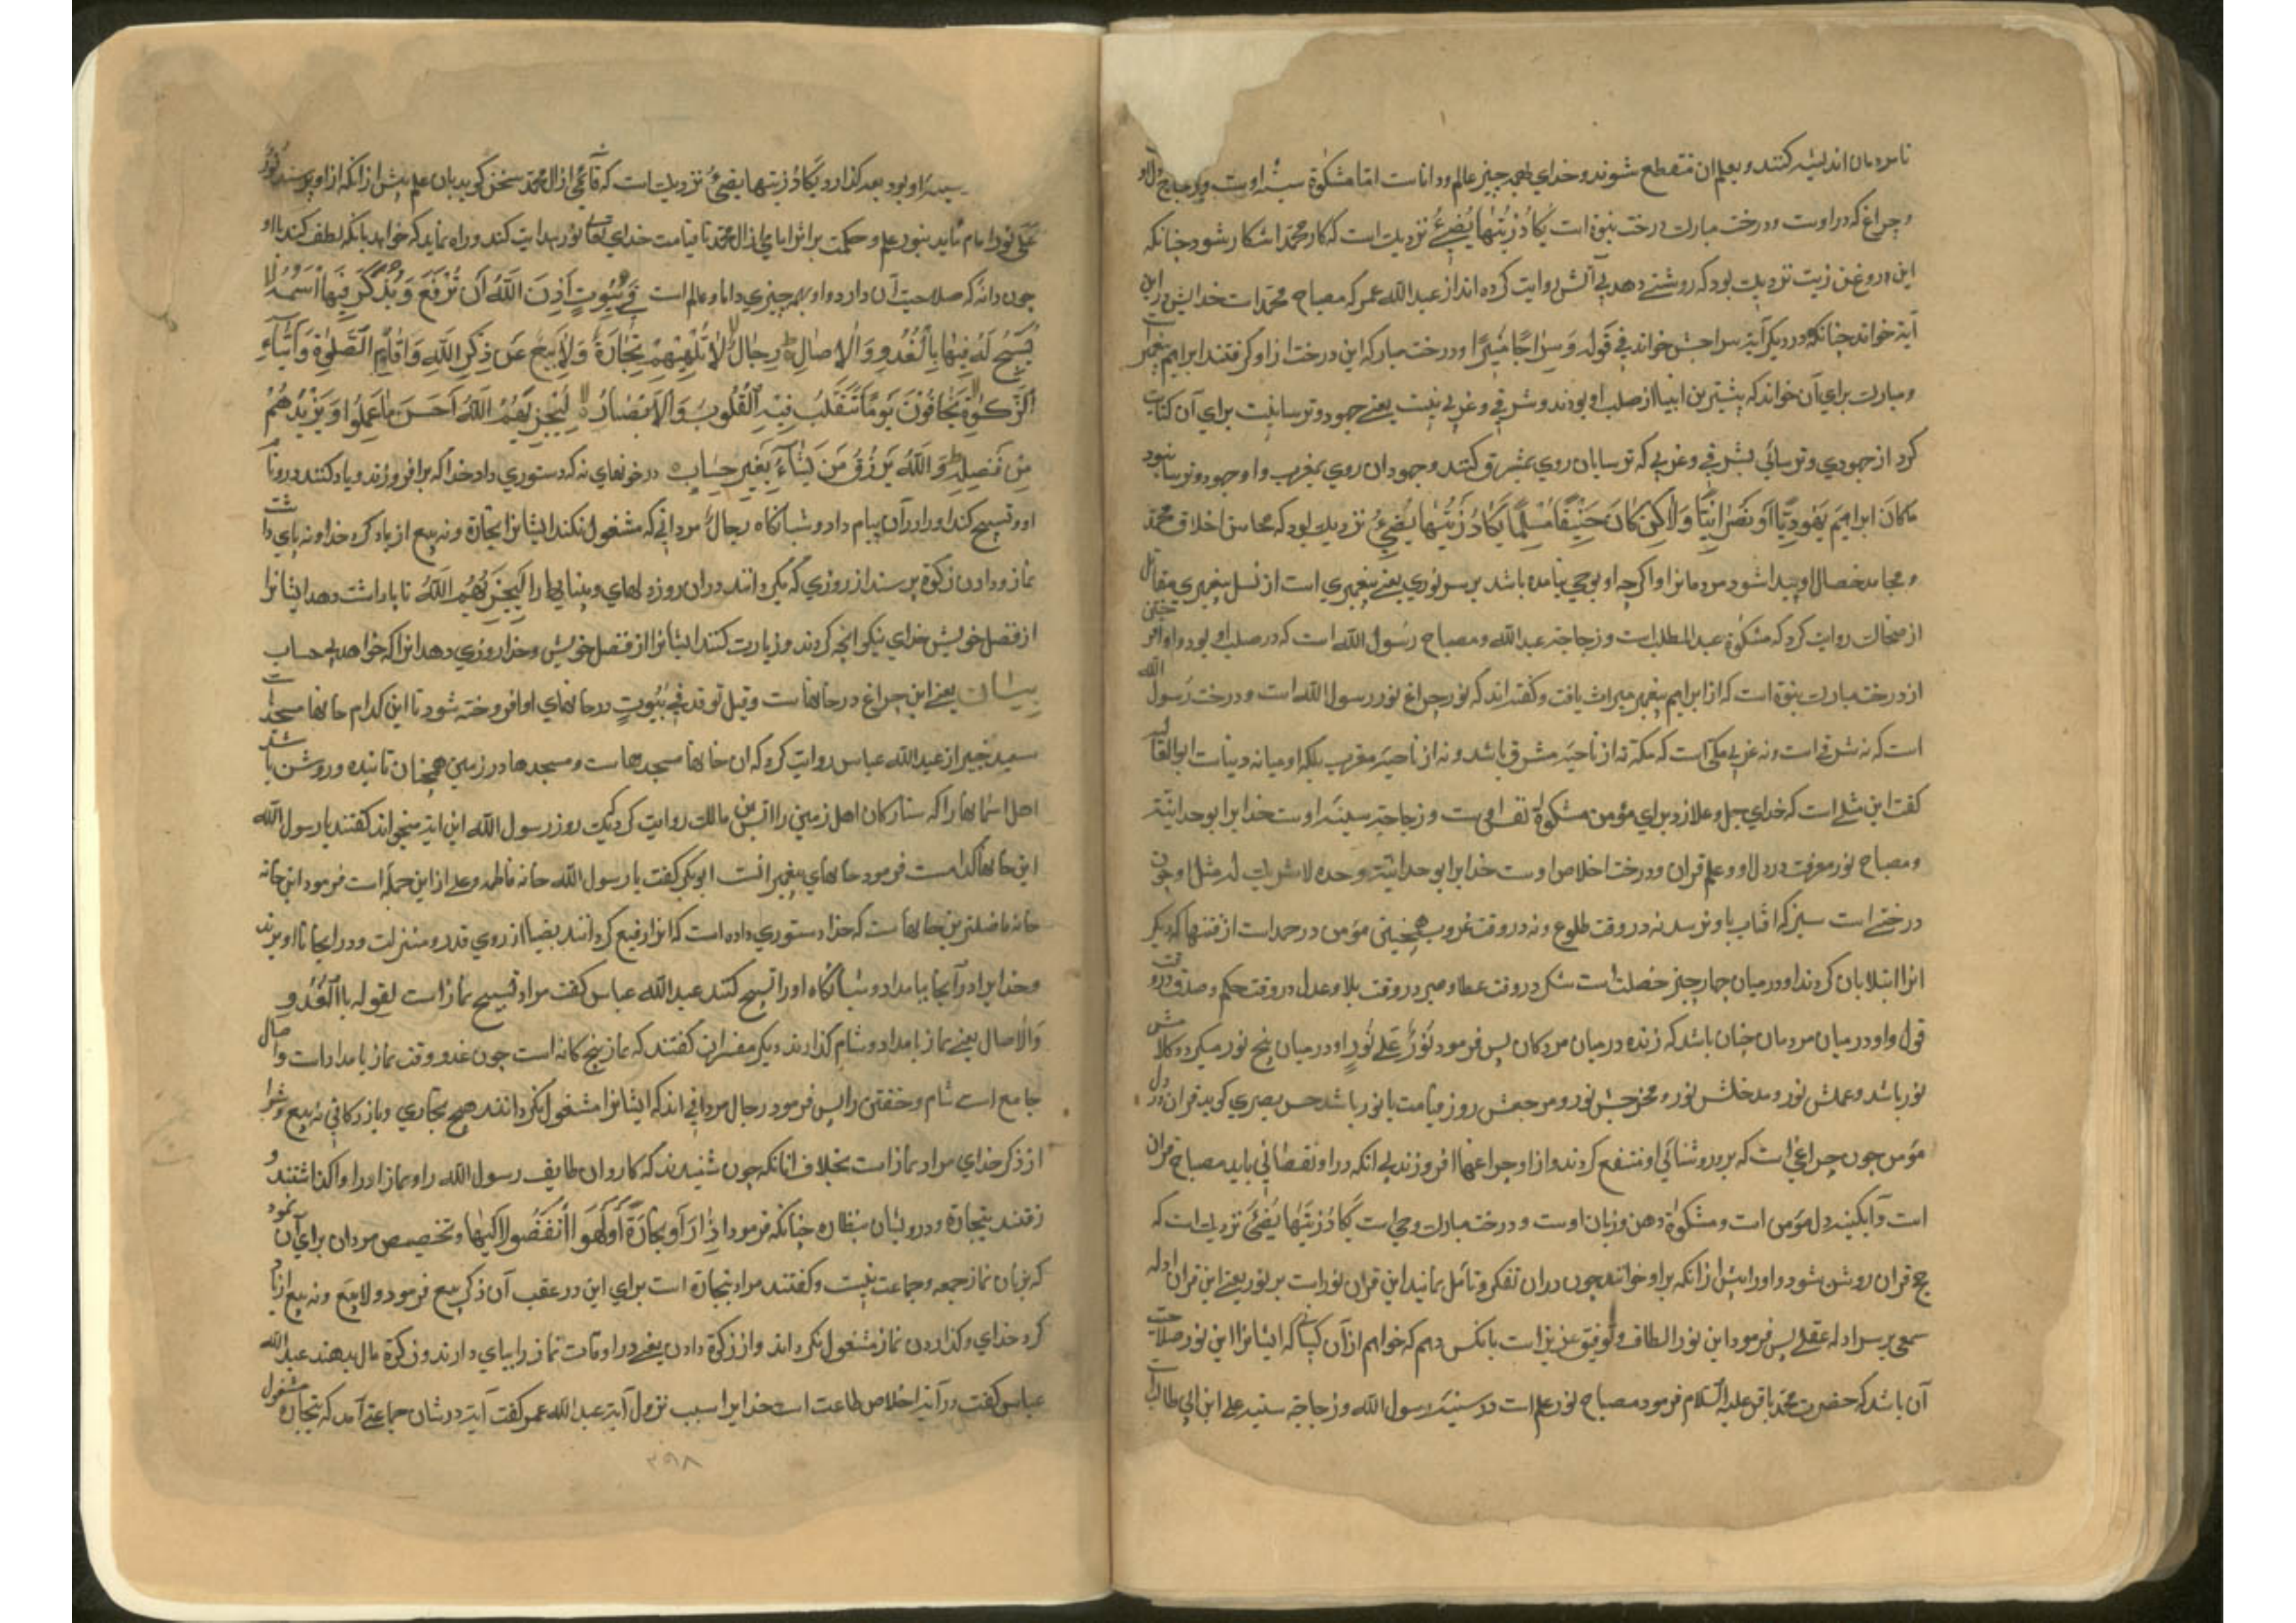 تا مردمان اندیشه کنند و بعلم ان منقطع شوند و خدای بهمه چیز عالم و داناست اما مشکوة سینه اوست و زجاجه دل او
و چراغ که در اوست و درخت مبارک درخت نبوة است یَکَادُ زَیْتُهَا یُضِیءُ نزدیک است که کار محمد اشکارا شود چنانکه
این روغن زیت نزدیک بود که روشنی دهد بی آتش روایت کرده اند از عبدالله عمر که مصباح محمد است خدایش در این
آیة خواند چنانکه در دیگر آیة سراجش خواند فی قوله وَسِرَاجًا مُنِیرًا و درخت مبارکه این درخت از او گرفتند ابراهیم پیغمبر است
و مبارک برای آن خواند که بیشترین انبیا از صلب او بودند و شرقی و غربی نیست یعنی جهود و ترسا نیست برای آن کنایت
کرد از جهودی و ترسائی بشرقی و غربی که ترسایان روی بمشرق کنند و جهودان روی بمغرب و او جهود و ترسا نبود
مَاکَانَ ابراهیمَ یَهُودِیًّا اَو نَصْرَانِیًّا وَلَاکِن کَانَ حَنِیفًا مُسْلِمًا یَکَادُ زَیْتُهَا یُضِیءُ نزدیک بود که محاسن اخلاق محمد
و محامد خصال او پیدا شود مردمانرا و اگرچه او بوحی نیامده باشد برسر نوری یعنی پیغمبری است از نسل پیغمبری مقاتل
از ضحاک روایت کرد که مشکوة عبدالمطلب است و زجاجه عبدالله و مصباح رسول الله است که در صلب او بود و او اقر ختی
از درخت مبارک نبوة است که از ابراهیم پیغمبر میراث یافت و گفته اند که نور چراغ نور رسول الله است و درخت رسول الله
است که نه شرقی است و نه غربی مکی است که مکه نه از ناحیة مشرق باشد و نه از ناحیة مغرب بلکه او میانه دنیاست ابوالقا
گفت این مثلی است که خدای جل و علا زد برای مؤمن مشکوة نفس اوست و زجاجة سینه اوست خدایرا بوحدانیته
و مصباح نور معرفت در دل او و علم قران و درخت اخلاص اوست خدایرا بوحدانیته وحده لا شریک له مثل او چون
درختی است سبز که افتاب باو نرسد نه در وقت طلوع و نه در وقت غروب همچنین مؤمن در حمد است از فتنها که دیگر
انرا ابتلا بان کردند او در میان چهار چیز خصلتست شکر در وقت عطا و صبر در وقت بلا و عدل در وقت حکم و صدق در وقت
قول و او در میان مردمان چنان باشد که زنده در میان مردگان پس فرمود نُورٌ عَلَی نُورٍ او در میان پنج نور میگردد کلامش
نور باشد و عملش نور و مدخلش نور و مخرجش نور و مرجعش روز قیامت با نور باشد حسن بصری گوید قران در دل
مؤمن چون چراغی است که بروشنائی او منتفع گردند و از او چراغها افروزند بی انکه در او نقصانی باید مصباح قران
است و آبگینه دل مؤمن است و مشکوة دهن و زبان اوست و درخت مبارک وحی است یَکَادُ زَیْتُهَا یُضِیءُ نزدیک است که
حجج قران روشن شود و اورا پیش از انکه براو خوانند چون دران تفکر و تامل نمایند این قران نور است بر نور یعنی این قران ادله
سمعی بر سر ادله عقلی پس فرمود این نور الطاف و توفیق عزیز است بانکس دهم که خواهم از آن کسانی که ایشانرا این نور صلاحیت
آن باشد که حضرت محمد باقر علیه السلام فرمود مصباح نور علم است در سینه رسول الله و زجاجة سینه علی ابن ابی طالب است
سینه او بود بعد گذارد یَکَادُ زَیْتُهَا یُضِیءُ نزدیک است که قائمی از ال محمد سخن گوید بان علم پیش از آنکه از او پرسند نُورٌ
عَلَی نُورٍ امام موید بنور علم و حکمت بر اثر امامی از ال محمد تا قیامت خدای تعالی بنور هدایت کند و راه نماید که خواهد بانکه لطف کند با او
چون داند که صلاحیت آن دارد و او بهر چیزی دانا و عالم است فِی بُیُوتٍ اَذِنَ اللّٰهُ اَن تُرْفَعَ وَیُذْکَرَ فِیهَا اسْمُهُ
یُسَبِّحُ لَهُ فِیهَا بِالْغُدُوِّ وَالْاٰصَالِ رِجَالٌ لَا تُلْهِیهِمْ تِجَارَةٌ وَلَا بَیْعٌ عَن ذِکْرِ اللّٰهِ وَاِقَامِ الصَّلٰوةِ وَاِیتَاءِ
الزَّکٰوةِ یَخَافُونَ یَوْمًا تَتَقَلَّبُ فِیهِ الْقُلُوبُ وَالْاَبْصَارُ لِیَجْزِیَهُمُ اللّٰهُ اَحْسَنَ مَا عَمِلُوا وَیَزِیدَهُمْ
مِن فَضْلِهِ وَاللّٰهُ یَرْزُقُ مَن یَشَاءُ بِغَیْرِ حِسَابٍ در خونهای نه که دستوری داد خدا که برافروزند و یاد کنند در و نام
او و تسبیح کنند اورا در آن بیام داد و شبانگاه رجال مردانی که مشغول نکند ایشانرا تجارة و نه بیع از یاد کرد خدا و نه بپای داشت
نماز و دادن زکوة پرسند از روزی که بگردانند دران روز دلهای و بینایها را لِیَجْزِیَهُمُ اللّٰهُ تا پاداشت دهد ایشانرا
از فضل خویش خدای نیکو انچه کردند و زیادت کنند ایشانرا از فضل خویش و خدا روزی دهد انرا که خواهد بی حساب
بیان یعنی این چراغ در خانهاست وقیل توقد فی بُیُوتٍ در خانهای او افروخته شود تا این کدام خانها مسجد است
سعید جبیر از عبدالله عباس روایت کرد که ان خانها مسجدهاست و مسجدها در زمین همچنان تابنده و روشن باشد
اهل اسمانها را که ستارگان اهل زمین را انس بن مالک روایت کرد یک روز رسول الله این ایة میخواند گفتند یا رسول الله
این خانها کدامست فرمود خانهای پیغمبرانست ابوبکر گفت یا رسول الله خانه فاطمه و علی از این جمله است فرمود این خانه
خانه فاضلترین خانهاست که خدا دستوری داده است که انرا رفیع گردانند بضیا از روی قدر و منزلت و در ایجا نام او برند
و خدایرا در آنجا بامداد و شبانگاه اورا تسبیح کنند عبدالله عباس گفت مراد تسبیح نماز است لقوله باالْغُدُو
وَالْاصال یعنی نماز بامداد و شام گذارند دیگر مفسران گفتند که نماز پنج گانه است چون غدو وقت نماز بامداد است و اصال
جامع است شام و خفتن را پس فرمود رجال مردانی اند که ایشانرا مشغول نگرداند هیچ تجاری و بازرگانی نه بیع و شرا
از ذکر خدای مراد نماز است بخلاف انانکه چون شنیدند که کاروان طایف رسول الله را و نماز اورا وا گذاشتند و
رفتند بتجارة و درویشان بنظاره چنانکه فرمود اِذَا رَاَوْ تِجَارَةً اَوْ لَهْوَا انْفَضُّوا اِلَیْهَا و تخصیص مردان برای آن نمود
که بزنان نماز جمعه و جماعت نیست و گفتند مراد بتجارة است برای این در عقب آن ذکر بیع فرمود ولا بَیْع و نه بیع از یاد
کرد خدای و گذاردن نماز مشغول نگرداند و از زکوة دادن یعنی در اوقات نماز را بپای دارند و زکوة مال بدهند عبدالله
عباس گفت در آیة اخلاص طاعت است خدایرا سبب نزول آیة عبدالله عمر گفت آیة در شان جماعتی آمد که بتجارة مشغول